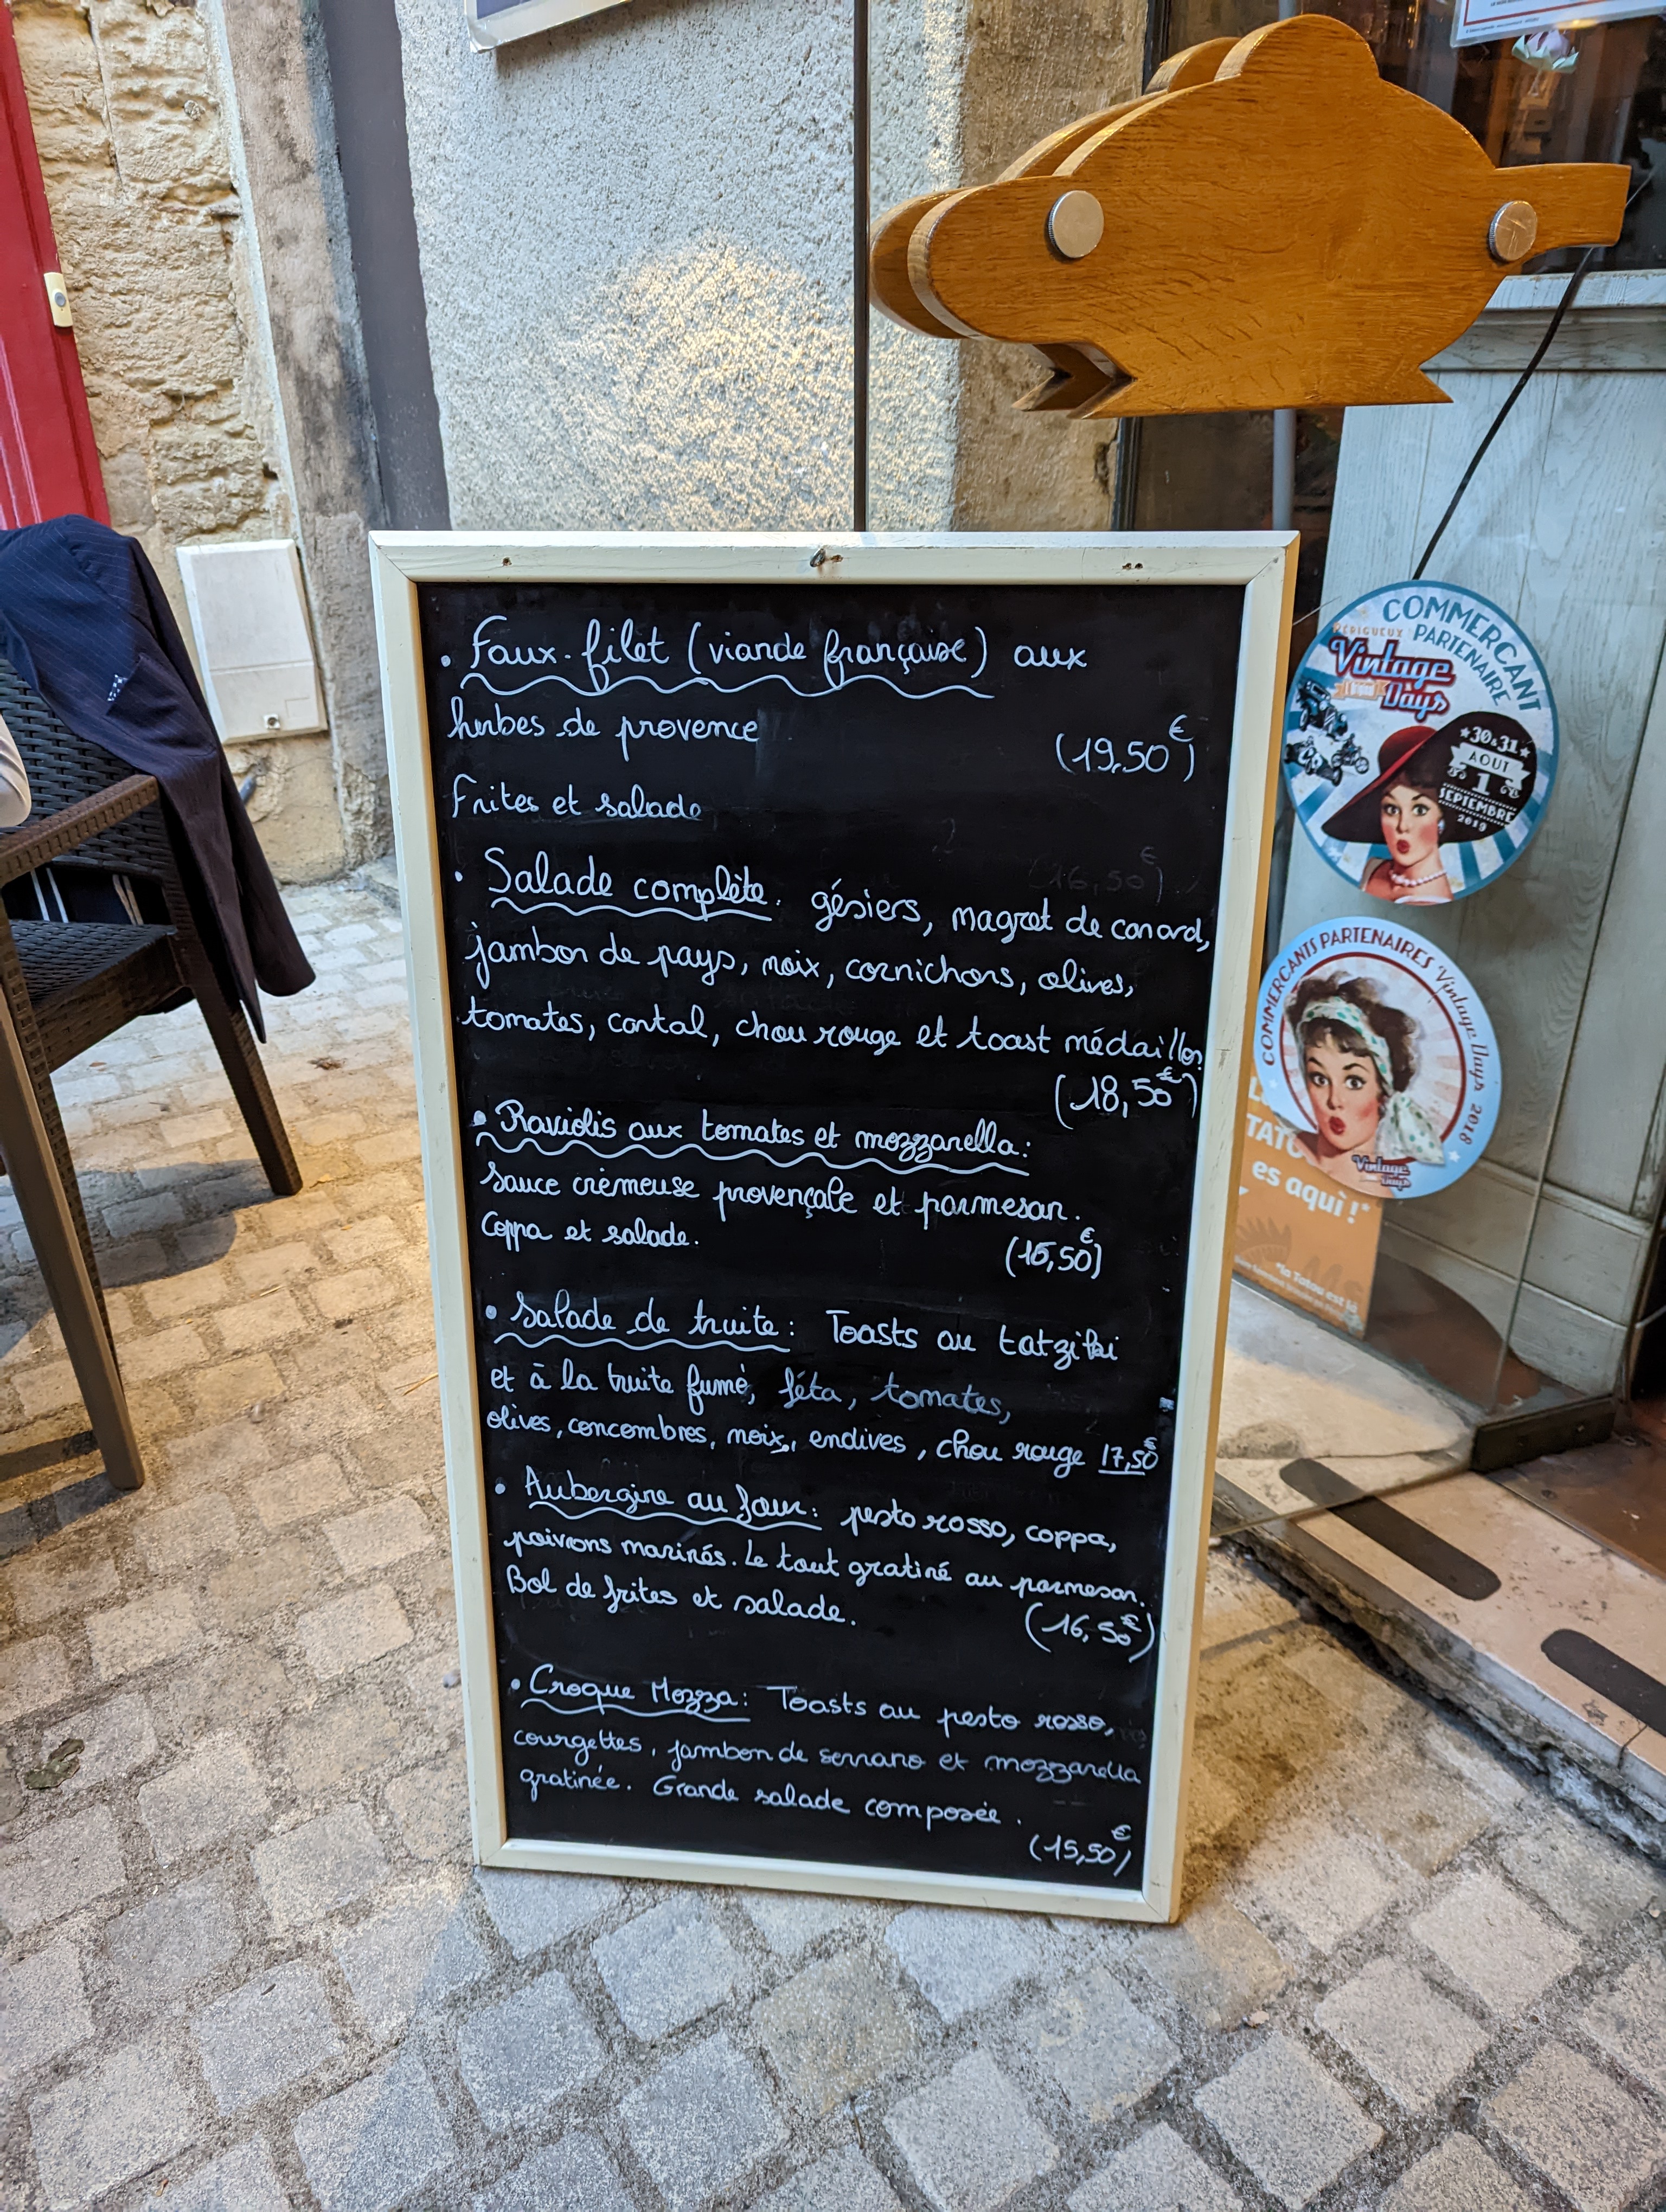 • Faux-filet (viande française) aux
herbes de provence (19,50€)
Frites et salade
(16,50€)
• Salade complète. gésiers, magret de canard,
jambon de pays, noix, cornichons, olives,
tomates, cantal, chou rouge et toast médaillon
(18,50€)
• Raviolis aux tomates et mozzarella:
sauce crèmeuse provençale et parmesan.
Coppa et salade. (16,50€)
• Salade de truite: Toasts au tatziki
et à la truite fumé, féta, tomates,
olives, concombres, noix, endives, chou rouge 17,50€
• Aubergine au four: pesto rosso, coppa,
poivrons marinés. Le tout gratiné au parmesan.
Bol de frites et salade. (16,50€)
• Croque Mozza: Toasts au pesto rosso,
courgettes, jambon de serrano et mozzarella
gratinée. Grande salade composée.
(15,50€)
COMMERÇANT
PARTENAIRE
PÉRIGUEUX
Vintage
Days
★30&31★
AOUT
1
SEPTEMBRE
2019
COMMERÇANTS PARTENAIRES Vintage Days 2018
Vintage
Days
es aquì !*
*la Tatou est là